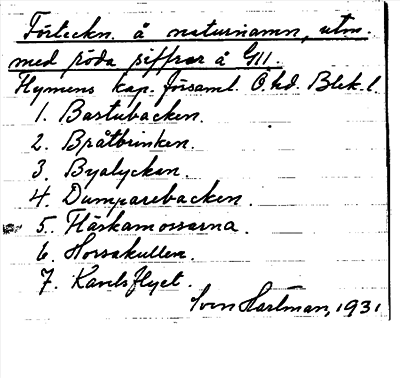 Förteckn. å naturnamn, utm.
med röda siffror å G11.
Hymens kap. församl. Ö. hd. Blek. l.
1. Bastubacken.
2. Bråtbrinken.
3. Byalyckan.
4. Dumparebacken.
5. Härkamossarna.
6. Horsakullen.
7. Karelsflyet.
Sven Hartman, 1931